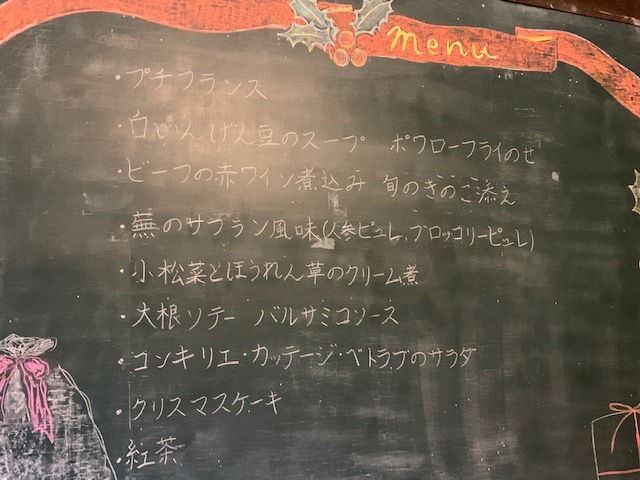 menu
・プチフランス
・白いんげん豆のスープ ポワローフライのせ
・ビーフの赤ワイン煮込み 旬のきのこ添え
・蕪のサフラン風味(人参ピュレ、ブロッコリーピュレ)
・小松菜とほうれん草のクリーム煮
・大根ソテー バルサミコソース
・コンキリエ・カッテージ・ベトラブのサラダ
・クリスマスケーキ
・紅茶